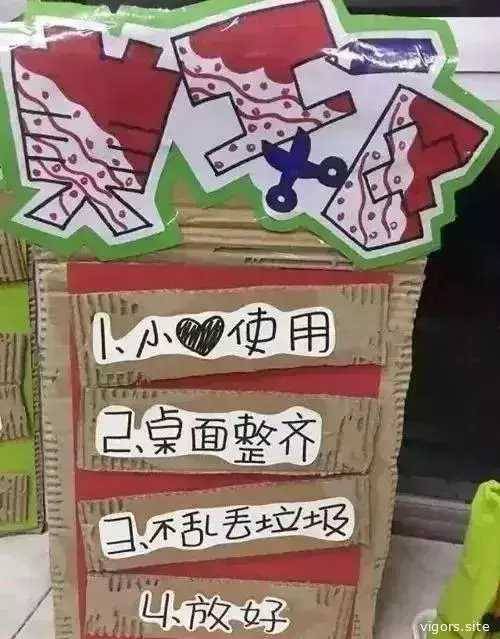 美工区
1、小♥使用
2、桌面整齐
3、不乱丢垃圾
4、放好
vigors.site